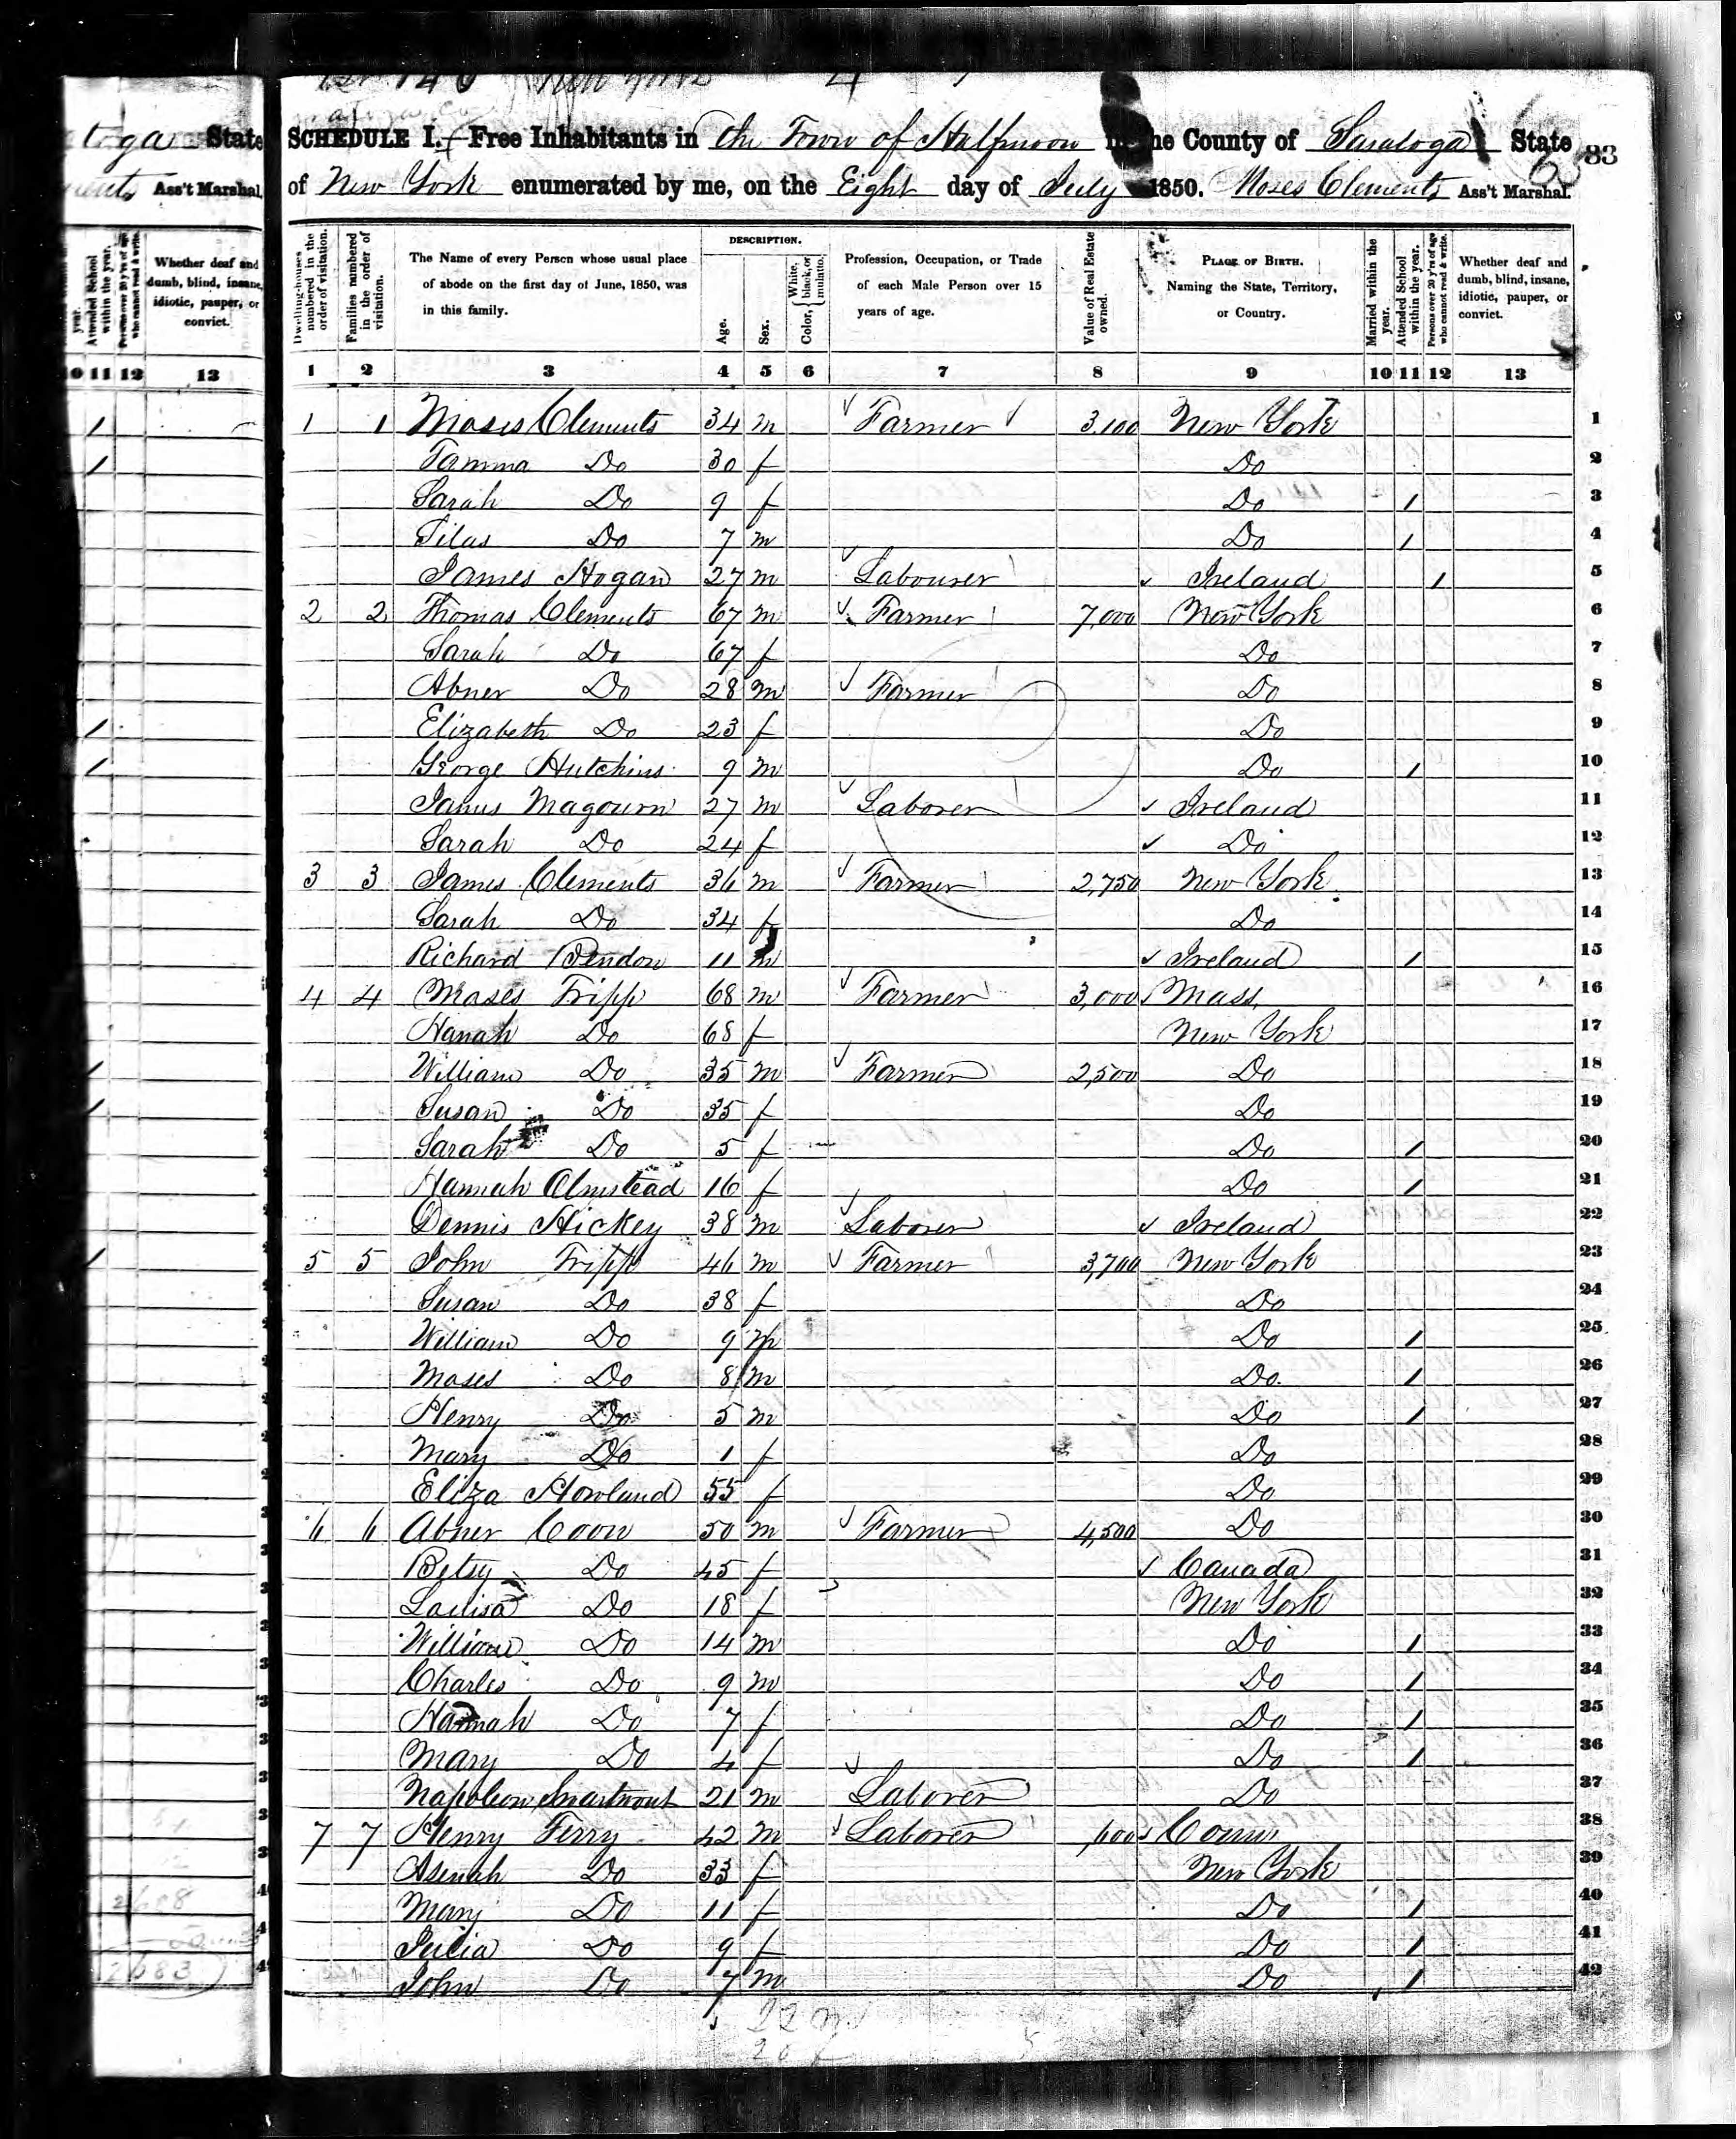 toga State
ments Ass't Marshal.
year.
Attended School within the year.
Persons over 20 y'rs of age who cannot read & write.
Whether deaf and dumb, blind, insane, idiotic, pauper, or convict.
0 11 12 13
2683
83
SCHEDULE I. Free Inhabitants in the Town of Halfmoon in the County of Saratoga State
of New York enumerated by me, on the Eight day of July 1850. Moses Clements Ass't Marshal.
Dwelling-houses numbered in the order of visitation.
Families numbered in the order of visitation.
The Name of every Person whose usual place of abode on the first day of June, 1850, was in this family.
DESCRIPTION.
Age.
Sex.
Color, { White, black, or mulatto.
Profession, Occupation, or Trade of each Male Person over 15 years of age.
Value of Real Estate owned.
PLACE OF BIRTH. Naming the State, Territory, or Country.
Married within the year.
Attended School within the year.
Persons over 20 y'rs of age who cannot read & write.
Whether deaf and dumb, blind, insane, idiotic, pauper, or convict.
1 2 3 4 5 6 7 8 9 10 11 12 13
1 1 Moses Clements 34 m Farmer 3,100 New York 1
Do 30 f Do 2
Sarah Do 9 f Do 1 3
Silas Do 7 m Do 1 4
James Hogan 27 m Labourer Ireland 1 5
2 2 Thomas Clements 67 m Farmer 7,000 New York 6
Sarah Do 67 f Do 7
Abner Do 28 m Farmer Do 8
Elizabeth Do 23 f Do 9
George Hutchins 9 m Do 1 10
James Magourn 27 m Laborer Ireland 11
Sarah Do 24 f Do 12
3 3 James Clements 36 m Farmer 2,750 New York 13
Sarah Do 34 f Do 14
Richard 11 m Ireland 1 15
4 4 Moses Tripp 68 m Farmer 3,000 Mass, 16
Hanah Do 68 f New York 17
William Do 35 m Farmer 2,500 Do 18
Susan Do 35 f Do 19
Sarah Do 5 f Do 1 20
Hannah Olmstead 16 f Do 1 21
Dennis Hickey 38 m Laborer Ireland 22
5 5 John Tripp 46 m Farmer 3,700 New York 23
Susan Do 38 f Do 24
William Do 9 m Do 1 25
Moses Do 8 m Do 1 26
Henry Do 5 m Do 1 27
Mary Do 1 f Do 28
Eliza Howland 55 f Do 29
6 6 Abner Coon 50 m Farmer 4,500 Do 30
Betsy Do 45 f Canada 31
Louisa Do 18 f New York 32
William Do 14 m Do 1 33
Charles Do 9 m Do 1 34
Hannah Do 7 f Do 1 35
Mary Do 4 f Do 1 36
Napoleon Swartwout 21 m Laborer Do 37
7 7 Henry Ferry 42 m Laborer ,600 Conn, 38
Asenah Do 33 f New York 39
Mary Do 11 f Do 1 40
Julia Do 9 f Do 1 41
John Do 7 m Do 1 42
22 m
20 f